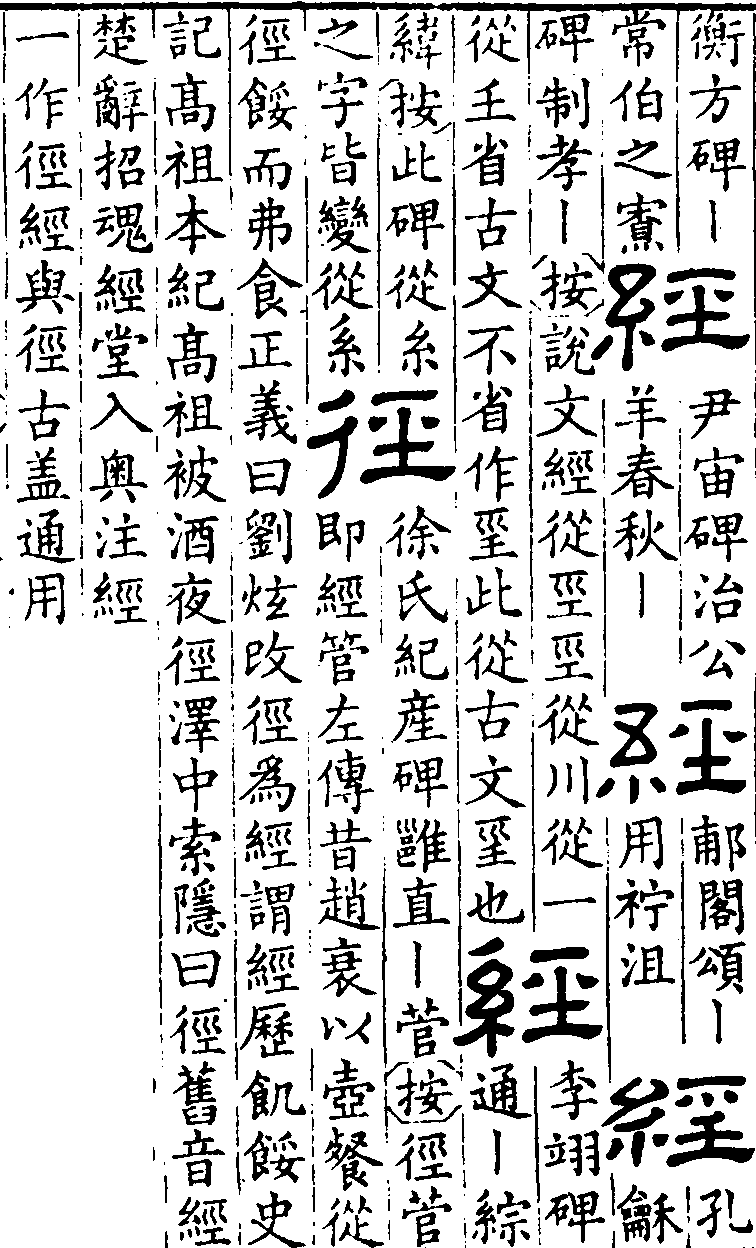 衡方碑丨
常伯之寮
經
尹宙碑治公
羊春秋丨
經
郙閣頌丨
用衧沮
經
孔
龢
碑制孝丨按說文經從巠巠從川從一
從𡈼省古文不省作𢀖此從古文𢀖也
經
李翊碑
通丨綜
緯按此碑從糸
之字皆變從系
徑
徐氏紀產碑雝直丨菅按徑菅
即經管左傳昔趙衰以壺餐從
徑餒而弗食正義曰劉炫改徑爲經謂經歷飢餒史
記髙祖本紀髙祖被酒夜徑澤中索隱曰徑舊音經
楚辭招魂經堂入奥注經
一作徑經與徑古盖通用